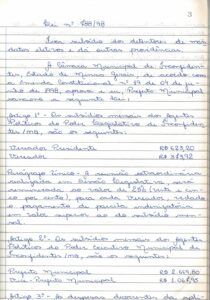 3
Lei nº 788/98
Fixa subsídio aos detentores de man-
datos eletivos e dá outras providências.
A Câmara Municipal de Inconfiden-
tes, Estado de Minas Gerais, de acordo
com a Emenda Constitucional nº 19 de 04 de ju-
nho de 1998, aprova e eu, Prefeito Municipal
sanciono a seguinte Lei:
Artigo 1º - Os subsídios mensais dos Agentes
Políticos do Poder Legislativo de Inconfiden-
tes/MG, são os seguintes:
Vereador Presidente R$
Vereador R$
Parágrafo Único - A reunião extraordinária
realizada em
remunerada no valor de
por cento), para cada Vereador,
o pagamento de parcela
em valor superior ao do subsídio men-
sal.
Artigo 2º - Os subsídios mensais dos Agentes
Políticos do Poder Executivo Municipal de
Inconfidentes/MG, são os seguintes:
Prefeito Municipal R$
Vice-Prefeito Municipal R$
Artigo 3º - As despesas decorrentes da